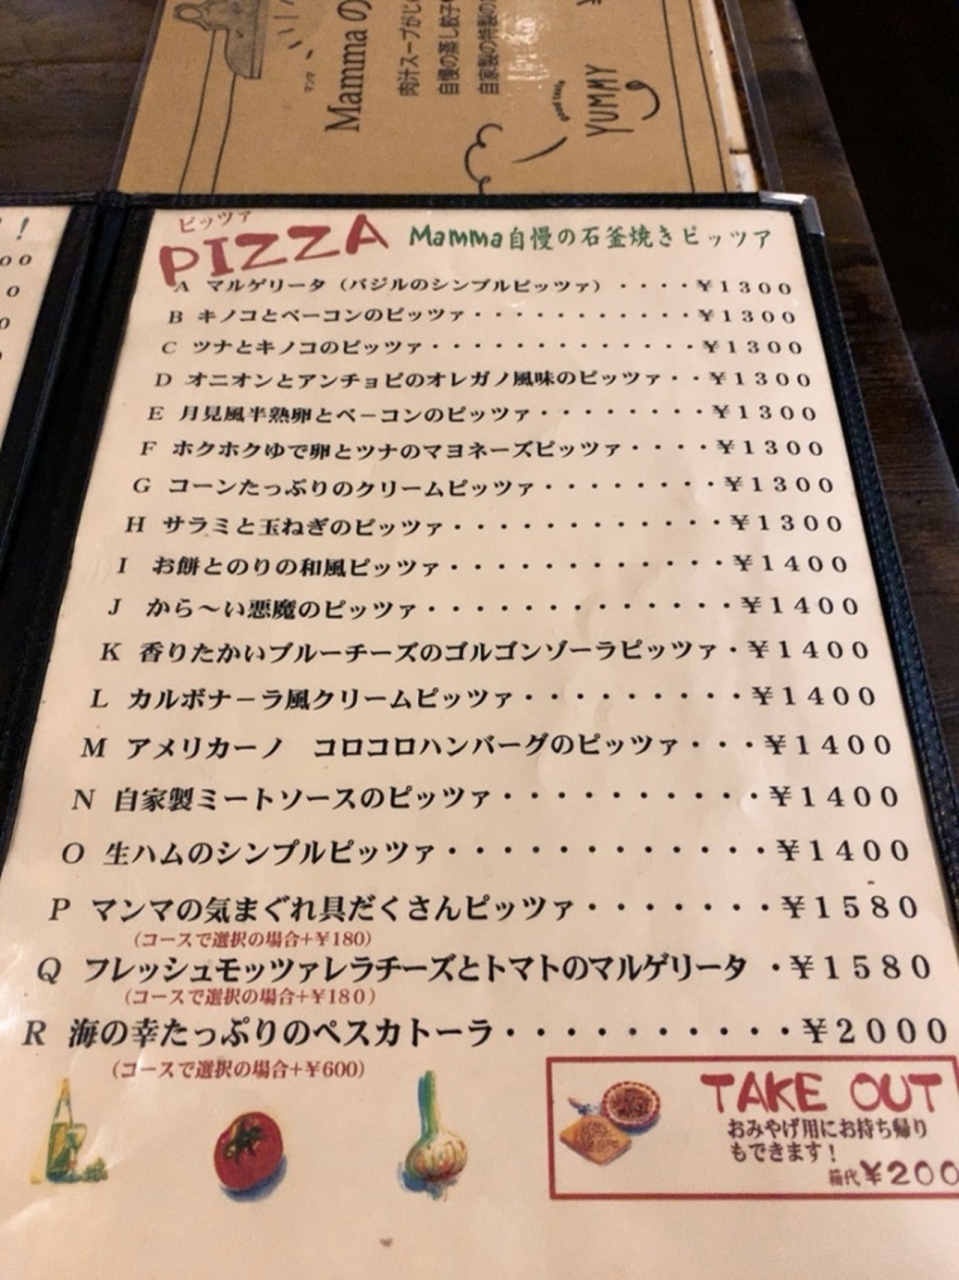 マンマ
Mamma の
肉汁スープがじゅ
自慢の蒸し餃子
自家製の特製の
good taste
YUMMY
!
００
０
ピッツァ
PIZZA Mamma自慢の石釜焼きピッツア
A マルゲリータ（バジルのシンプルピッツァ）・・・・¥1300
B キノコとベーコンのピッツァ・・・・・・・・・・・¥1300
C ツナとキノコのピッツァ・・・・・・・・・・・・・¥1300
D オニオンとアンチョビのオレガノ風味のピッツァ・・¥1300
E 月見風半熟卵とベーコンのピッツァ・・・・・・・・¥1300
F ホクホクゆで卵とツナのマヨネーズピッツァ・・・・¥1300
G コーンたっぷりのクリームピッツァ・・・・・・・・¥1300
H サラミと玉ねぎのピッツァ・・・・・・・・・・・・¥1300
I お餅とのりの和風ピッツァ・・・・・・・・・・・・¥1400
J から〜い悪魔のピッツァ・・・・・・・・・・・・・¥1400
K 香りたかいブルーチーズのゴルゴンゾーラピッツァ・¥1400
L カルボナーラ風クリームピッツァ・・・・・・・・・¥1400
M アメリカーノ　コロコロハンバーグのピッツァ・・・¥1400
N 自家製ミートソースのピッツァ・・・・・・・・・・¥1400
O 生ハムのシンプルピッツァ・・・・・・・・・・・・¥1400
P マンマの気まぐれ具だくさんピッツァ・・・・・・・¥1580
（コースで選択の場合+¥180）
Q フレッシュモッツァレラチーズとトマトのマルゲリータ ・¥1580
（コースで選択の場合+¥180）
R 海の幸たっぷりのペスカトーラ・・・・・・・・・・¥2000
（コースで選択の場合+¥600）
TAKE OUT
おみやげ用にお持ち帰り
もできます！
箱代¥200